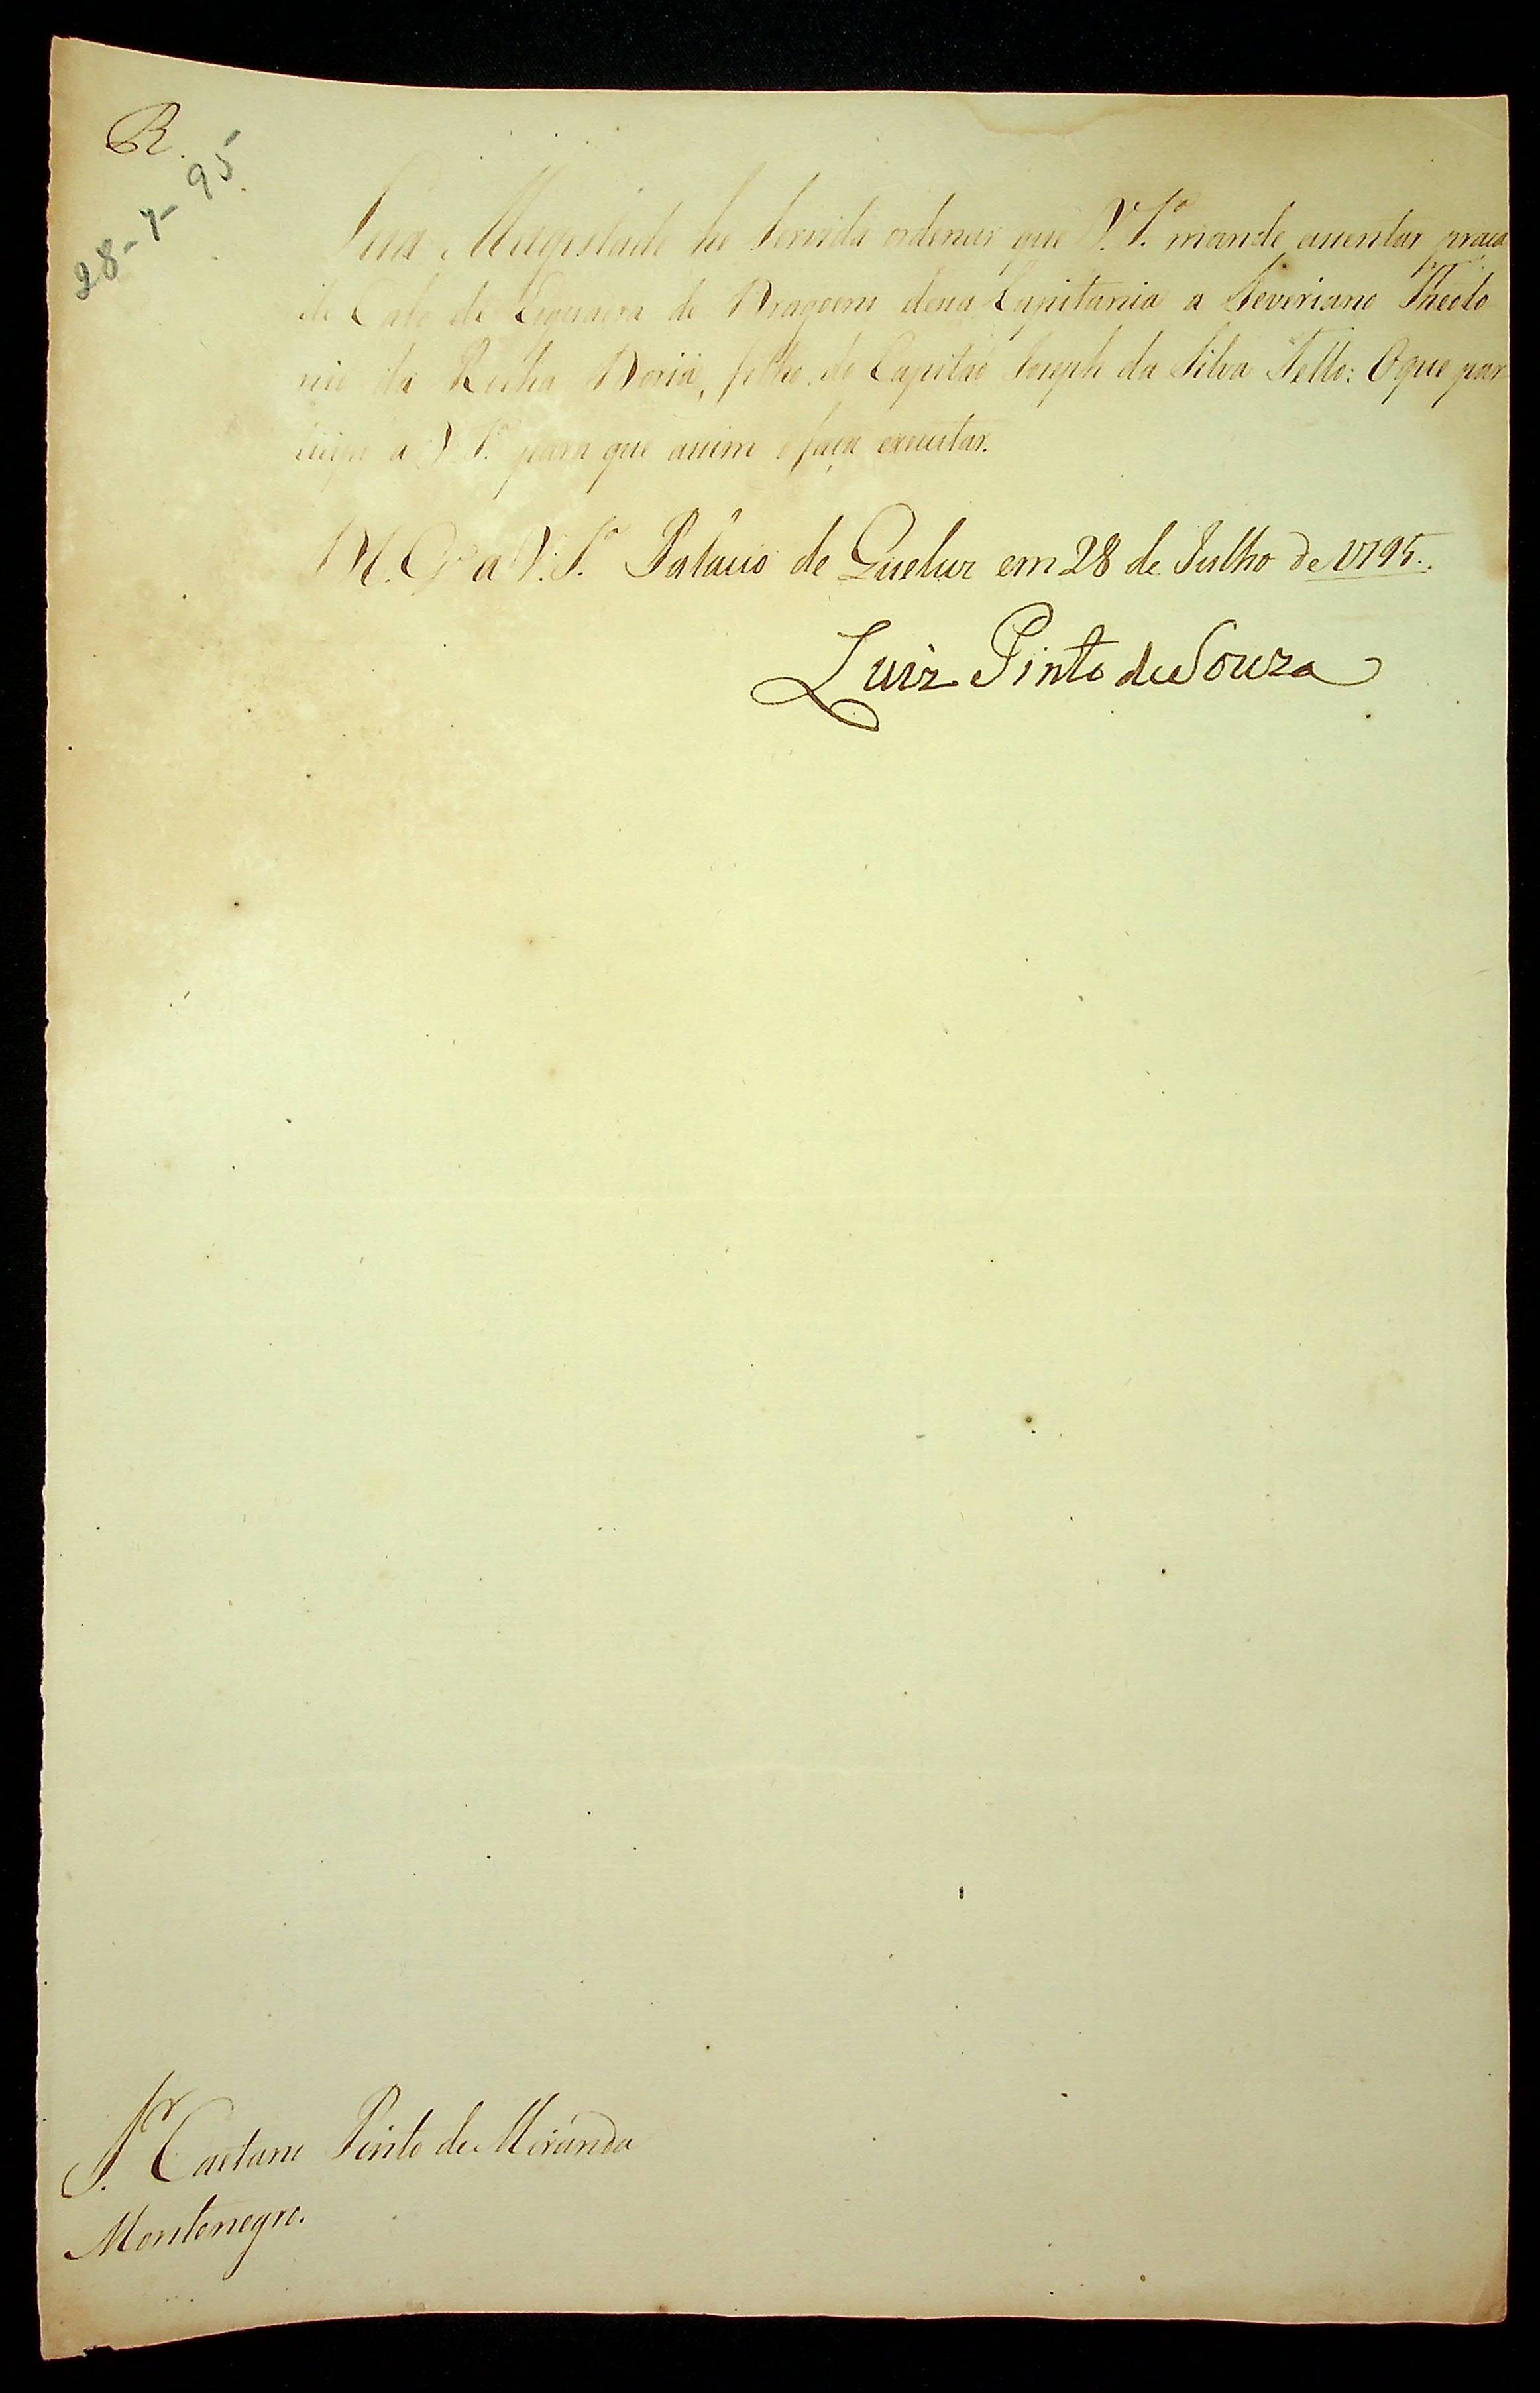 R.
28-7-95.
Sua Magestade he Servida ordenar que V. S.ª mande assentar praça
de Cabo de Esquadra de Dragoens dessa Capitania a Severiano Theoto
nio da Rocha Doria, filho do Capitaõ Joseph da Silva Tello: O que par
ticipo a V. S.ª para que assim o faça executar.
D. G. a V. S.ª Palacio de Queluz em 28 de Julho de 1795.
Luiz Pinto de Souza
S.ʳ Caetano Pinto de Miranda
Montenegro.